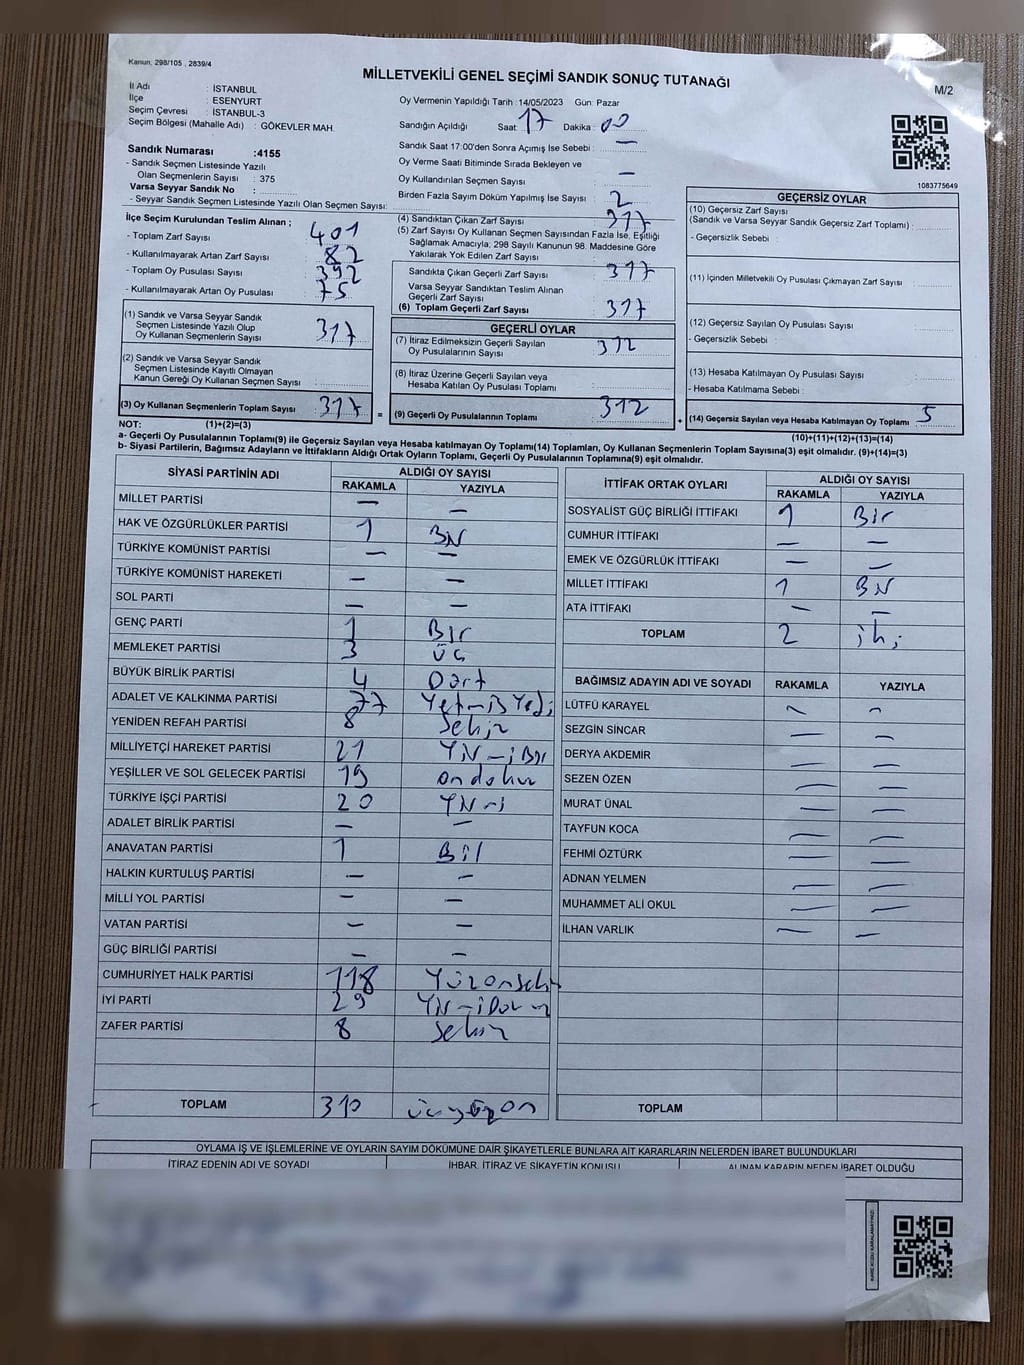 Kanun; 298/105 , 2839/4
MİLLETVEKİLİ GENEL SEÇİMİ SANDIK SONUÇ TUTANAĞI
M/2
İl Adı : İSTANBUL
İlçe : ESENYURT
Seçim Çevresi : İSTANBUL-3
Seçim Bölgesi (Mahalle Adı) : GÖKEVLER MAH.
Sandık Numarası :4155
- Sandık Seçmen Listesinde Yazılı
Olan Seçmen Sayısı : 375
Varsa Seyyar Sandık No :
- Seyyar Sandık Seçmen Listesinde Yazılı Olan Seçmen Sayısı:
Oy Vermenin Yapıldığı Tarih :14/05/2023 Gün: Pazar
Sandığın Açıldığı Saat: 17 Dakika: 00
Sandık Saat 17:00'den Sonra Açımış İse Sebebi : —
Oy Verme Saati Bitiminde Sırada Bekleyen ve
Oy Kullandırılan Seçmen Sayısı —
Birden Fazla Sayım Döküm Yapılmış İse Sayısı 2
1083775649
İlçe Seçim Kurulundan Teslim Alınan ;
- Toplam Zarf Sayısı 401
- Kullanılmayarak Artan Zarf Sayısı 82
- Toplam Oy Pusulası Sayısı 392
- Kullanılmayarak Artan Oy Pusulası 75
(1) Sandık ve Varsa Seyyar Sandık
Seçmen Listesinde Yazılı Olup
Oy Kullanan Seçmenlerin Sayısı 317
(2) Sandık ve Varsa Seyyar Sandık
Seçmen Listesinde Kayıtlı Olmayan
Kanun Gereği Oy Kullanan Seçmen Sayısı
(3) Oy Kullanan Seçmenlerin Toplam Sayısı 317 =
(4) Sandıktan Çıkan Zarf Sayısı 317
(5) Zarf Sayısı Oy Kullanan Seçmen Sayısından Fazla İse, Eşitliği
Sağlamak Amacıyla; 298 Sayılı Kanunun 98. Maddesine Göre
Yakılarak Yok Edilen Zarf Sayısı
Sandıkta Çıkan Geçerli Zarf Sayısı 317
Varsa Seyyar Sandıktan Teslim Alınan
Geçerli Zarf Sayısı
(6) Toplam Geçerli Zarf Sayısı 317
GEÇERLİ OYLAR
(7) İtiraz Edilmeksizin Geçerli Sayılan
Oy Pusulalarının Sayısı 312
(8) İtiraz Üzerine Geçerli Sayılan veya
Hesaba Katılan Oy Pusulası Toplamı
(9) Geçerli Oy Pusulalarının Toplamı 312 +
GEÇERSİZ OYLAR
(10) Geçersiz Zarf Sayısı
(Sandık ve Varsa Seyyar Sandık Geçersiz Zarf Toplamı) :
- Geçersizlik Sebebi :
(11) İçinden Milletvekili Oy Pusulası Çıkmayan Zarf Sayısı
(12) Geçersiz Sayılan Oy Pusulası Sayısı
- Geçersizlik Sebebi :
(13) Hesaba Katılmayan Oy Pusulası Sayısı
- Hesaba Katılmama Sebebi :
(14) Geçersiz Sayılan veya Hesaba Katılmayan Oy Toplamı 5
NOT: (1)+(2)=(3)
(10)+(11)+(12)+(13)=(14)
a- Geçerli Oy Pusulalarının Toplamı(9) ile Geçersiz Sayılan veya Hesaba katılmayan Oy Toplamı(14) Toplamları, Oy Kullanan Seçmenlerin Toplam Sayısına(3) eşit olmalıdır. (9)+(14)=(3)
b- Siyasi Partilerin, Bağımsız Adayların ve İttifakların Aldığı Ortak Oyların Toplamı, Geçerli Oy Pusulalarının Toplamına(9) eşit olmalıdır.
SİYASİ PARTİNİN ADI ALDIĞI OY SAYISI
RAKAMLA YAZIYLA
MİLLET PARTİSİ — —
HAK VE ÖZGÜRLÜKLER PARTİSİ 1 Bir
TÜRKİYE KOMÜNİST PARTİSİ — —
TÜRKİYE KOMÜNİST HAREKETİ — —
SOL PARTİ — —
GENÇ PARTİ 1 Bir
MEMLEKET PARTİSİ 3 üç
BÜYÜK BİRLİK PARTİSİ 4 Dört
ADALET VE KALKINMA PARTİSİ 77 Yetmiş Yedi
YENİDEN REFAH PARTİSİ 8 Sekiz
MİLLİYETÇİ HAREKET PARTİSİ 21 Yirmi Bir
YEŞİLLER VE SOL GELECEK PARTİSİ 19 on dokuz
TÜRKİYE İŞÇİ PARTİSİ 20 Yirmi
ADALET BİRLİK PARTİSİ — —
ANAVATAN PARTİSİ 1 Bir
HALKIN KURTULUŞ PARTİSİ — —
MİLLİ YOL PARTİSİ — —
VATAN PARTİSİ — —
GÜÇ BİRLİĞİ PARTİSİ — —
CUMHURİYET HALK PARTİSİ 118 Yüzonsekiz
İYİ PARTİ 29 Yirmi Dokuz
ZAFER PARTİSİ 8 Sekiz
TOPLAM 310 üçyüzon
İTTİFAK ORTAK OYLARI ALDIĞI OY SAYISI
RAKAMLA YAZIYLA
SOSYALİST GÜÇ BİRLİĞİ İTTİFAKI 1 Bir
CUMHUR İTTİFAKI — —
EMEK VE ÖZGÜRLÜK İTTİFAKI — —
MİLLET İTTİFAKI 1 Bir
ATA İTTİFAKI — —
TOPLAM 2 iki
BAĞIMSIZ ADAYIN ADI VE SOYADI RAKAMLA YAZIYLA
LÜTFÜ KARAYEL — —
SEZGİN SİNCAR — —
DERYA AKDEMİR — —
SEZEN ÖZEN — —
MURAT ÜNAL — —
TAYFUN KOCA — —
FEHMİ ÖZTÜRK — —
ADNAN YELMEN — —
MUHAMMET ALİ OKUL — —
İLHAN VARLIK — —
TOPLAM
OYLAMA İŞ VE İŞLEMLERİNE VE OYLARIN SAYIM DÖKÜMÜNE DAİR ŞİKAYETLERLE BUNLARA AİT KARARLARIN NELERDEN İBARET BULUNDUKLARI
İTİRAZ EDENİN ADI VE SOYADI İHBAR, İTİRAZ VE ŞİKAYETİN KONUSU ALINAN KARARIN NEDEN İBARET OLDUĞU
KARE KODU KARALAMAYINIZ!